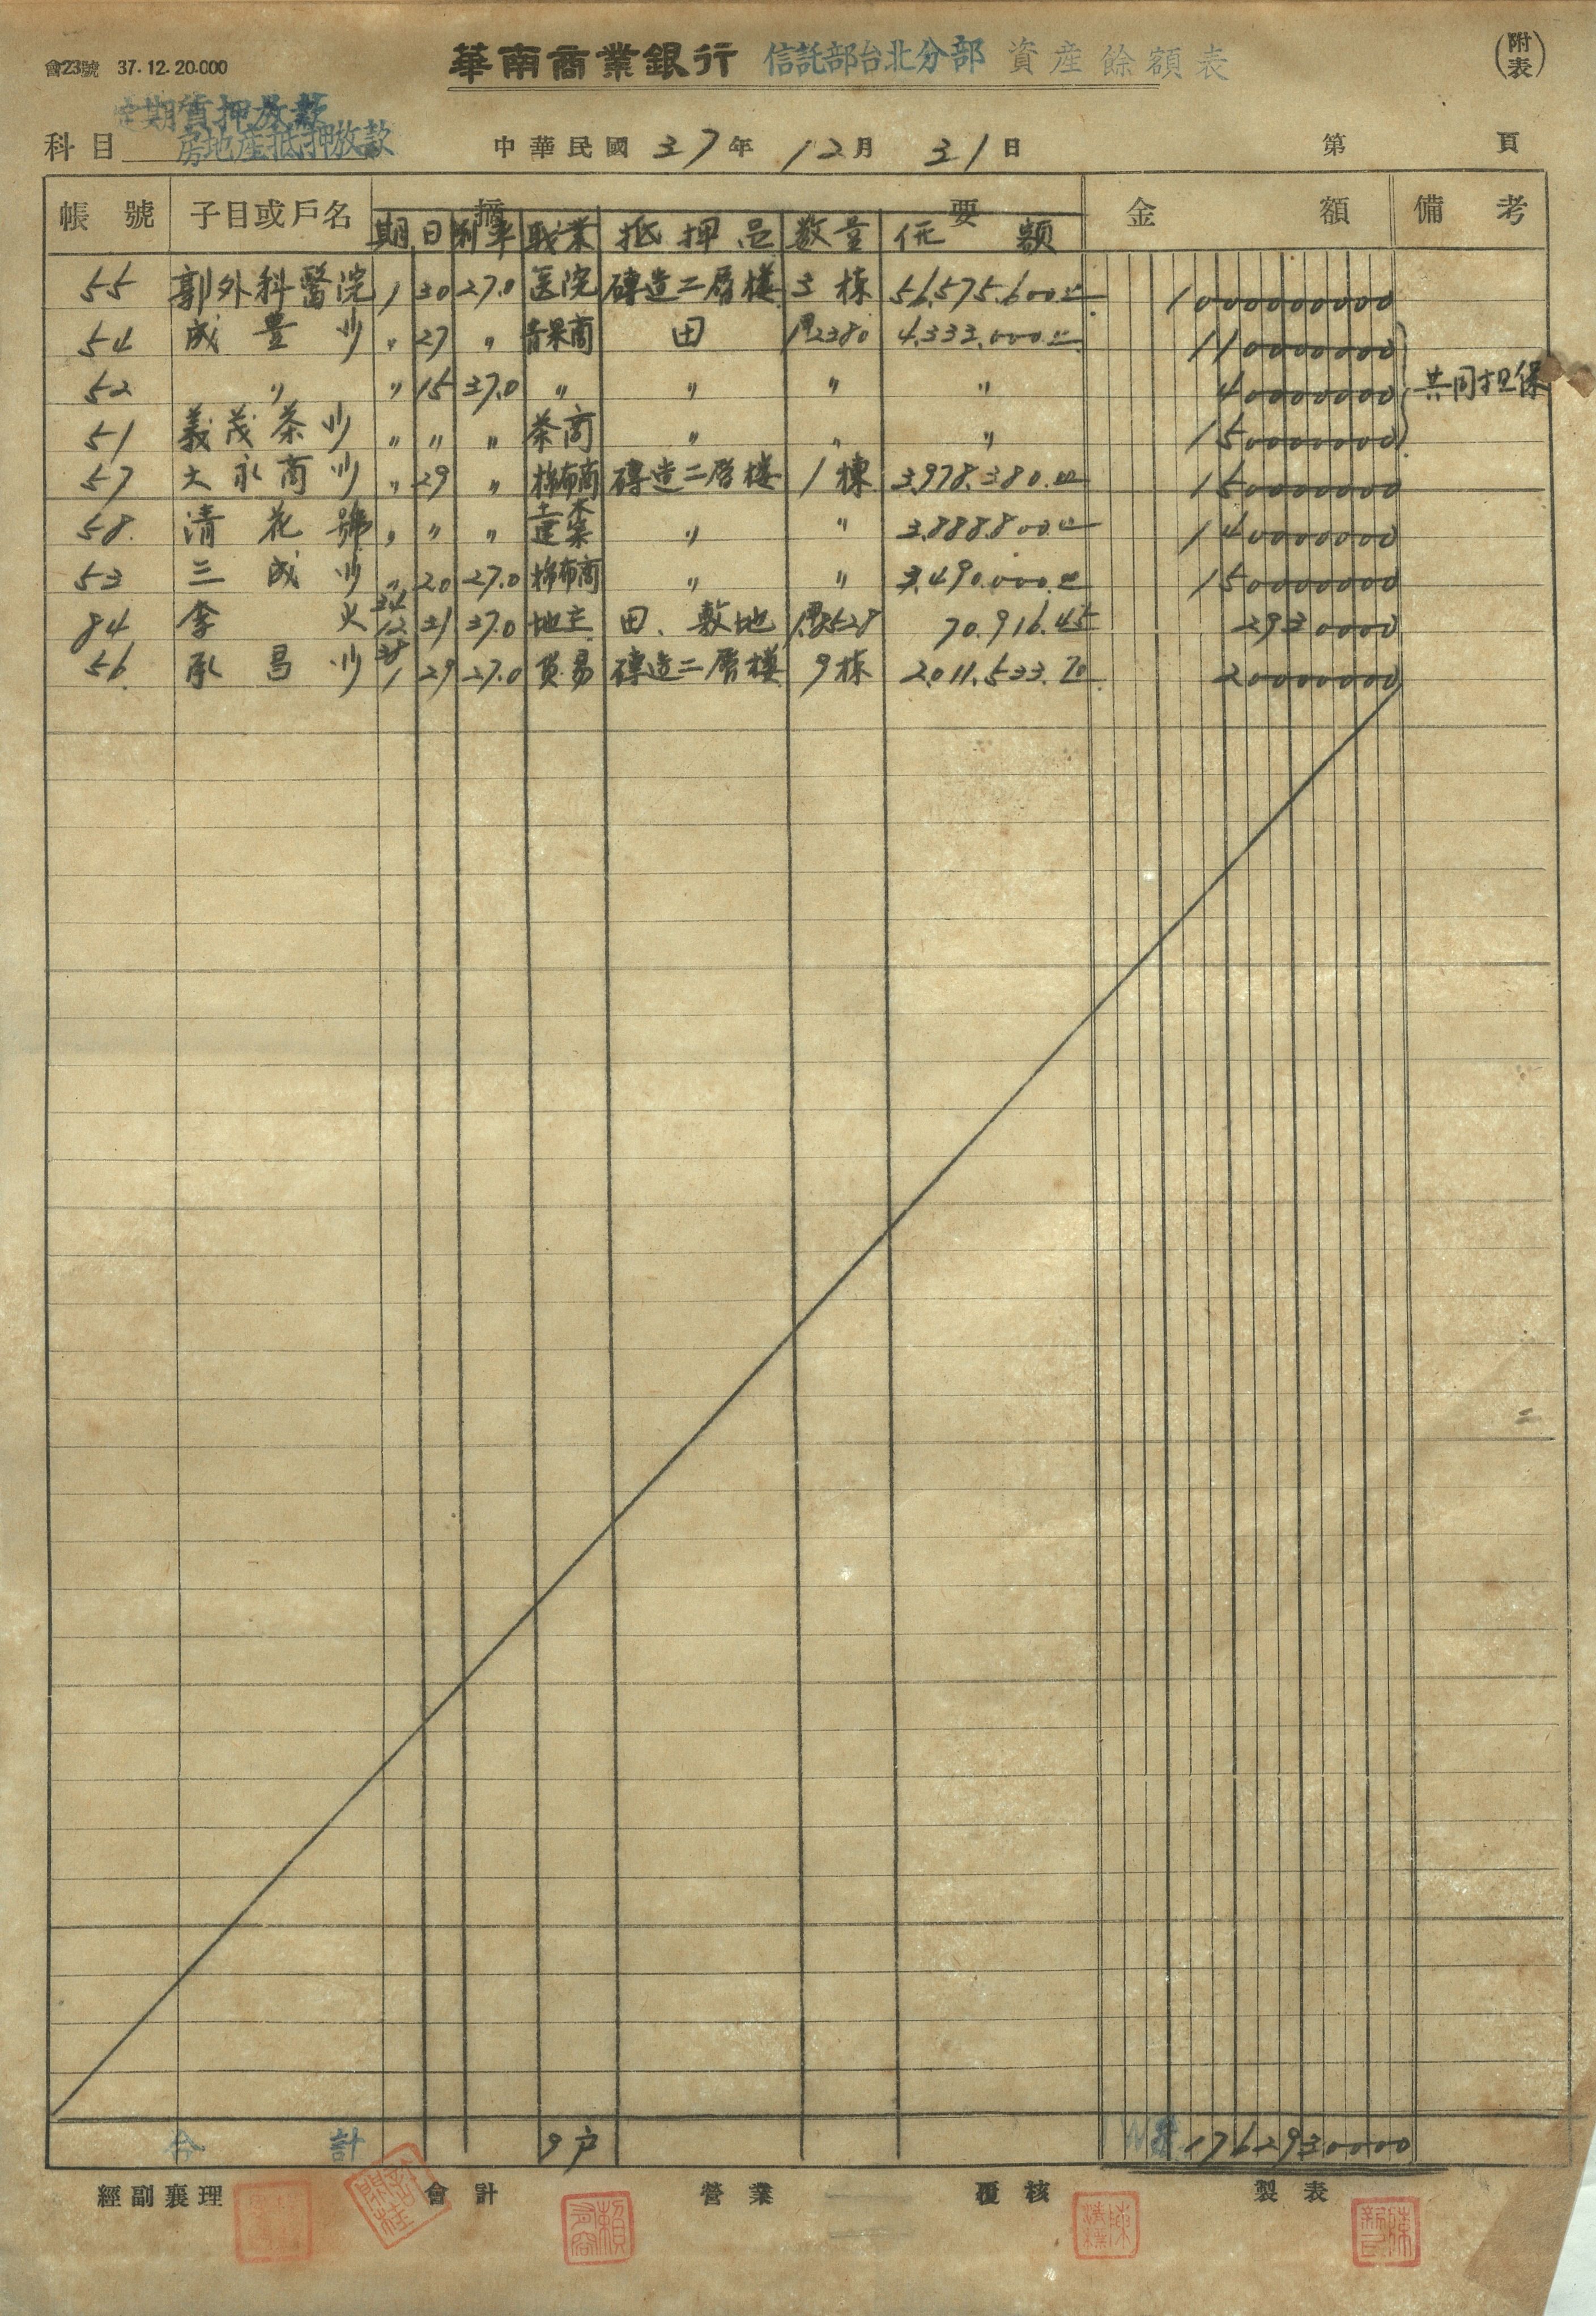 會23號 37.12.20.000
華南商業銀行 信託部台北分部 資產餘額表
(附表)
定期質押放款
科目 房地產抵押放款 中華民國 37年 12月 31日 第 頁
帳號 子目或戶名 摘要 金額 備考
期日 利率 職業 抵押品 数量 価額
55 郭外科醫院 1 30 27.0 医院 磚造二層樓 3棟 56,575,600.00 1000000000
54 成豊 〃 27 〃 青果商 田 2380 4,333,000.00 110000000
52 〃 〃 15 37.0 〃 〃 〃 〃 40000000 共同担保
51 義茂茶 〃 〃 〃 茶商 〃 〃 〃 150000000
57 大永商 〃 29 〃 棉布商 磚造二層樓 1棟 3,978,380.00 150000000
58 清花號 〃 〃 〃 土木建築 〃 〃 3,888,800.00 140000000
53 三成 〃 20 27.0 棉布商 〃 〃 3,490,000.00 150000000
84 李火 12 31 37.0 地主 田、敷地 8528 70,916.45 2930000
56 承昌 1 29 27.0 貿易 磚造二層樓 9棟 2,011,533.70 20000000
合計 9户 1762930000
經副襄理 會計 營業 覆核 製表